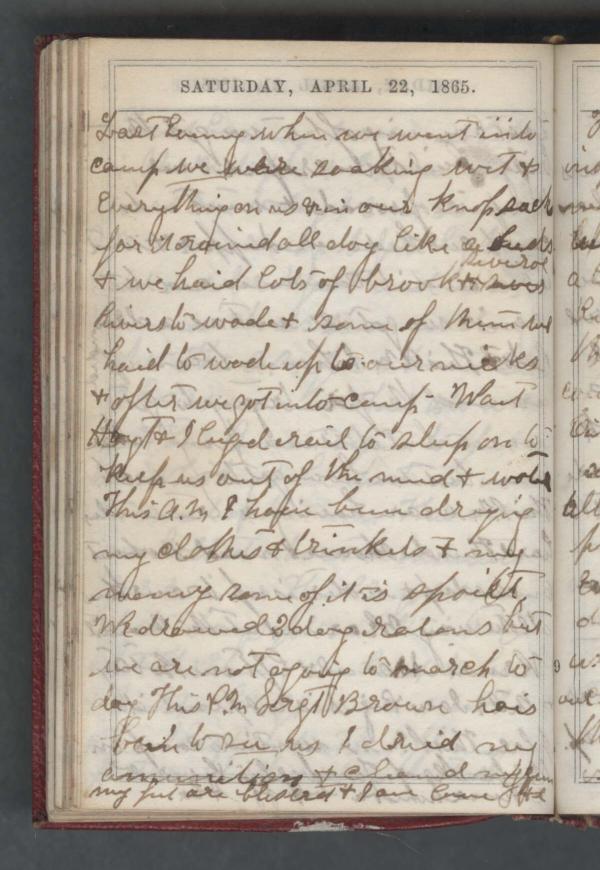 SATURDAY, APRIL 22, 1865.
Last Evning when we went into
camp we ware soaking wet &
Everything on us & in our Knapsack
for it raind all day like a
& we haid lots of brooks & several
Rivers to wade & some of them we
haid to wade up to our necks
& after we got into camp Walt
Hoyt & I luged rail to sleep on to
keep us out of the mud & water
This A.M I have been drying
my clothes & trinkets & my
money some of it is spoilt
We drawed 2 day rations but
we are not agoing to march to
day This P.M Sergt Brown hais
bein to see us I dried my
amunition & cleaned my gun
my feet are blisterd & I am lame